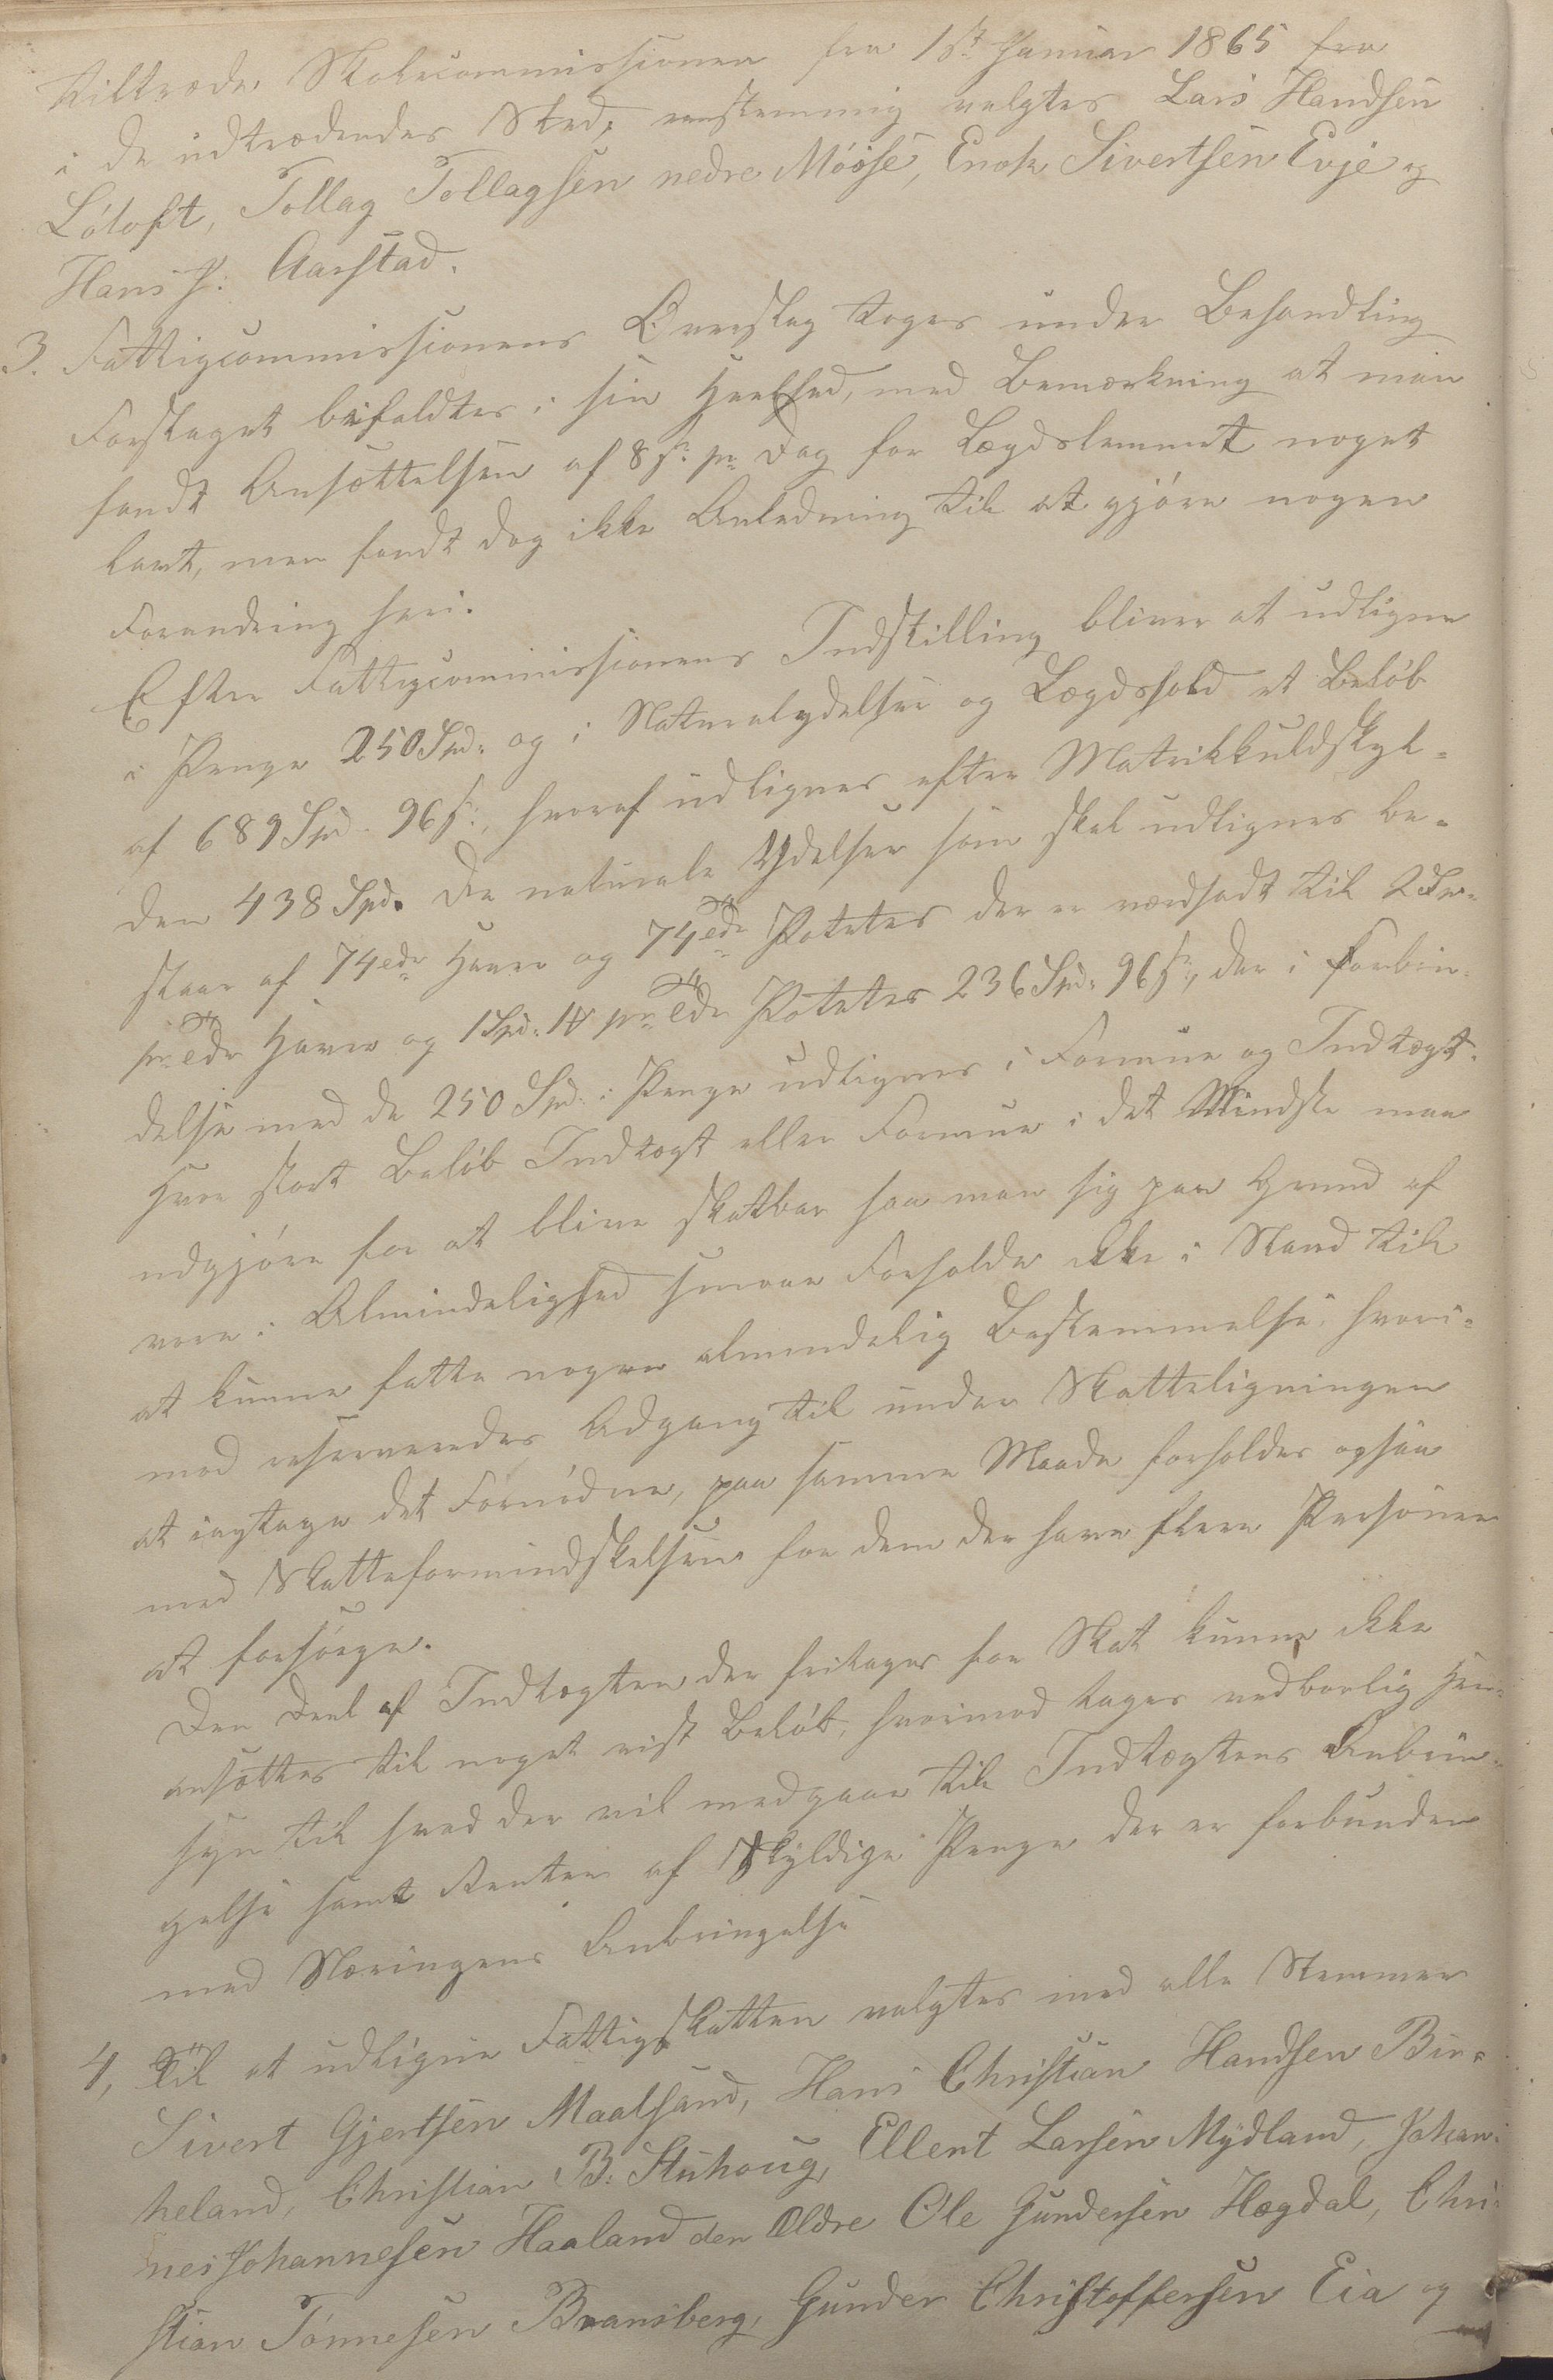 tiltræde Skolecommissionen fra 1ste Januar 1865 fra
i de udtrædendes Sted, eenstemmig valgtes Lars Handsen
Lótoft, Tollag Tollagsen nedre Móóse, Enok Sivertsen Evje og
Hans J: Aarstad.
3. Fattigcommissionens Overslag toges under Behandling
Forslaget bifaldtes i sin Heelhed, med Bemærkning at man
fandt Ansættelsen af 8 s: pr Dag for Lægdslemmet noget
lavt, men fandt dog ikke Anledning til at gjóre nogen
Forandring heri.
Efter Fattigcommissionens Indstilling bliver at udligne
i Penge 250 Spd: og i Naturalydelser og Lægdshold et Belób
af 689 Spd. 96 s:, hvoraf udlignes efter Matrikkuldskyl-
den 438 Spd. De naturale Ydelser som skal udlignes be-
staar af 74 Havre og 74 Potetes der er værdsadt til 2 Sp.
pr Havre og 1 Spd: pr Potetes 236 Spd: 96 s:, der i Forbin-
delse med de 250 Spd: i Penge udlignes i Formue og Indtægt.
Hvor stort Belób Indtægt eller Formue i det Mindste maa
udgjóre for at blive skatbar saa man sig paa Grund af
vore i Almindelighed smaae Forholde ikke i Stand til
at kunne fatte nogen almindelig Bestemmelse, hvori-
mod reserveredes Adgang til under Skatteligningen
at iagtage det Fornódne, paa samme Maade forholdes ogsaa
med Skatteformindskelsen for dem der have flere Personer
at forsórge.
Den Deel af Indtægten der fritages for Skat kunne ikke
ansættes til noget vist Belób, hvorimod tages vedbórlig Hen-
syn til hvad der vil medgaae til Indtægtens Anbrin-
gelse samt Renter af skyldige Penge der er forbunden
med Næringens Anbringelse
4, Til at udligne Fattigskatten valgtes med alle Stemmer
Sivert Gjertsen Maalsand, Hans Christian Handsen Bir-
keland, Christian B: Stuhoug, Ellent Larsen Mydland, Johan-
nes Johannesen Haaland den Ældre Ole Gundersen Hægdal, Chri-
stian Tónnesen Bransberg, Gunder Christoffersen Eia og